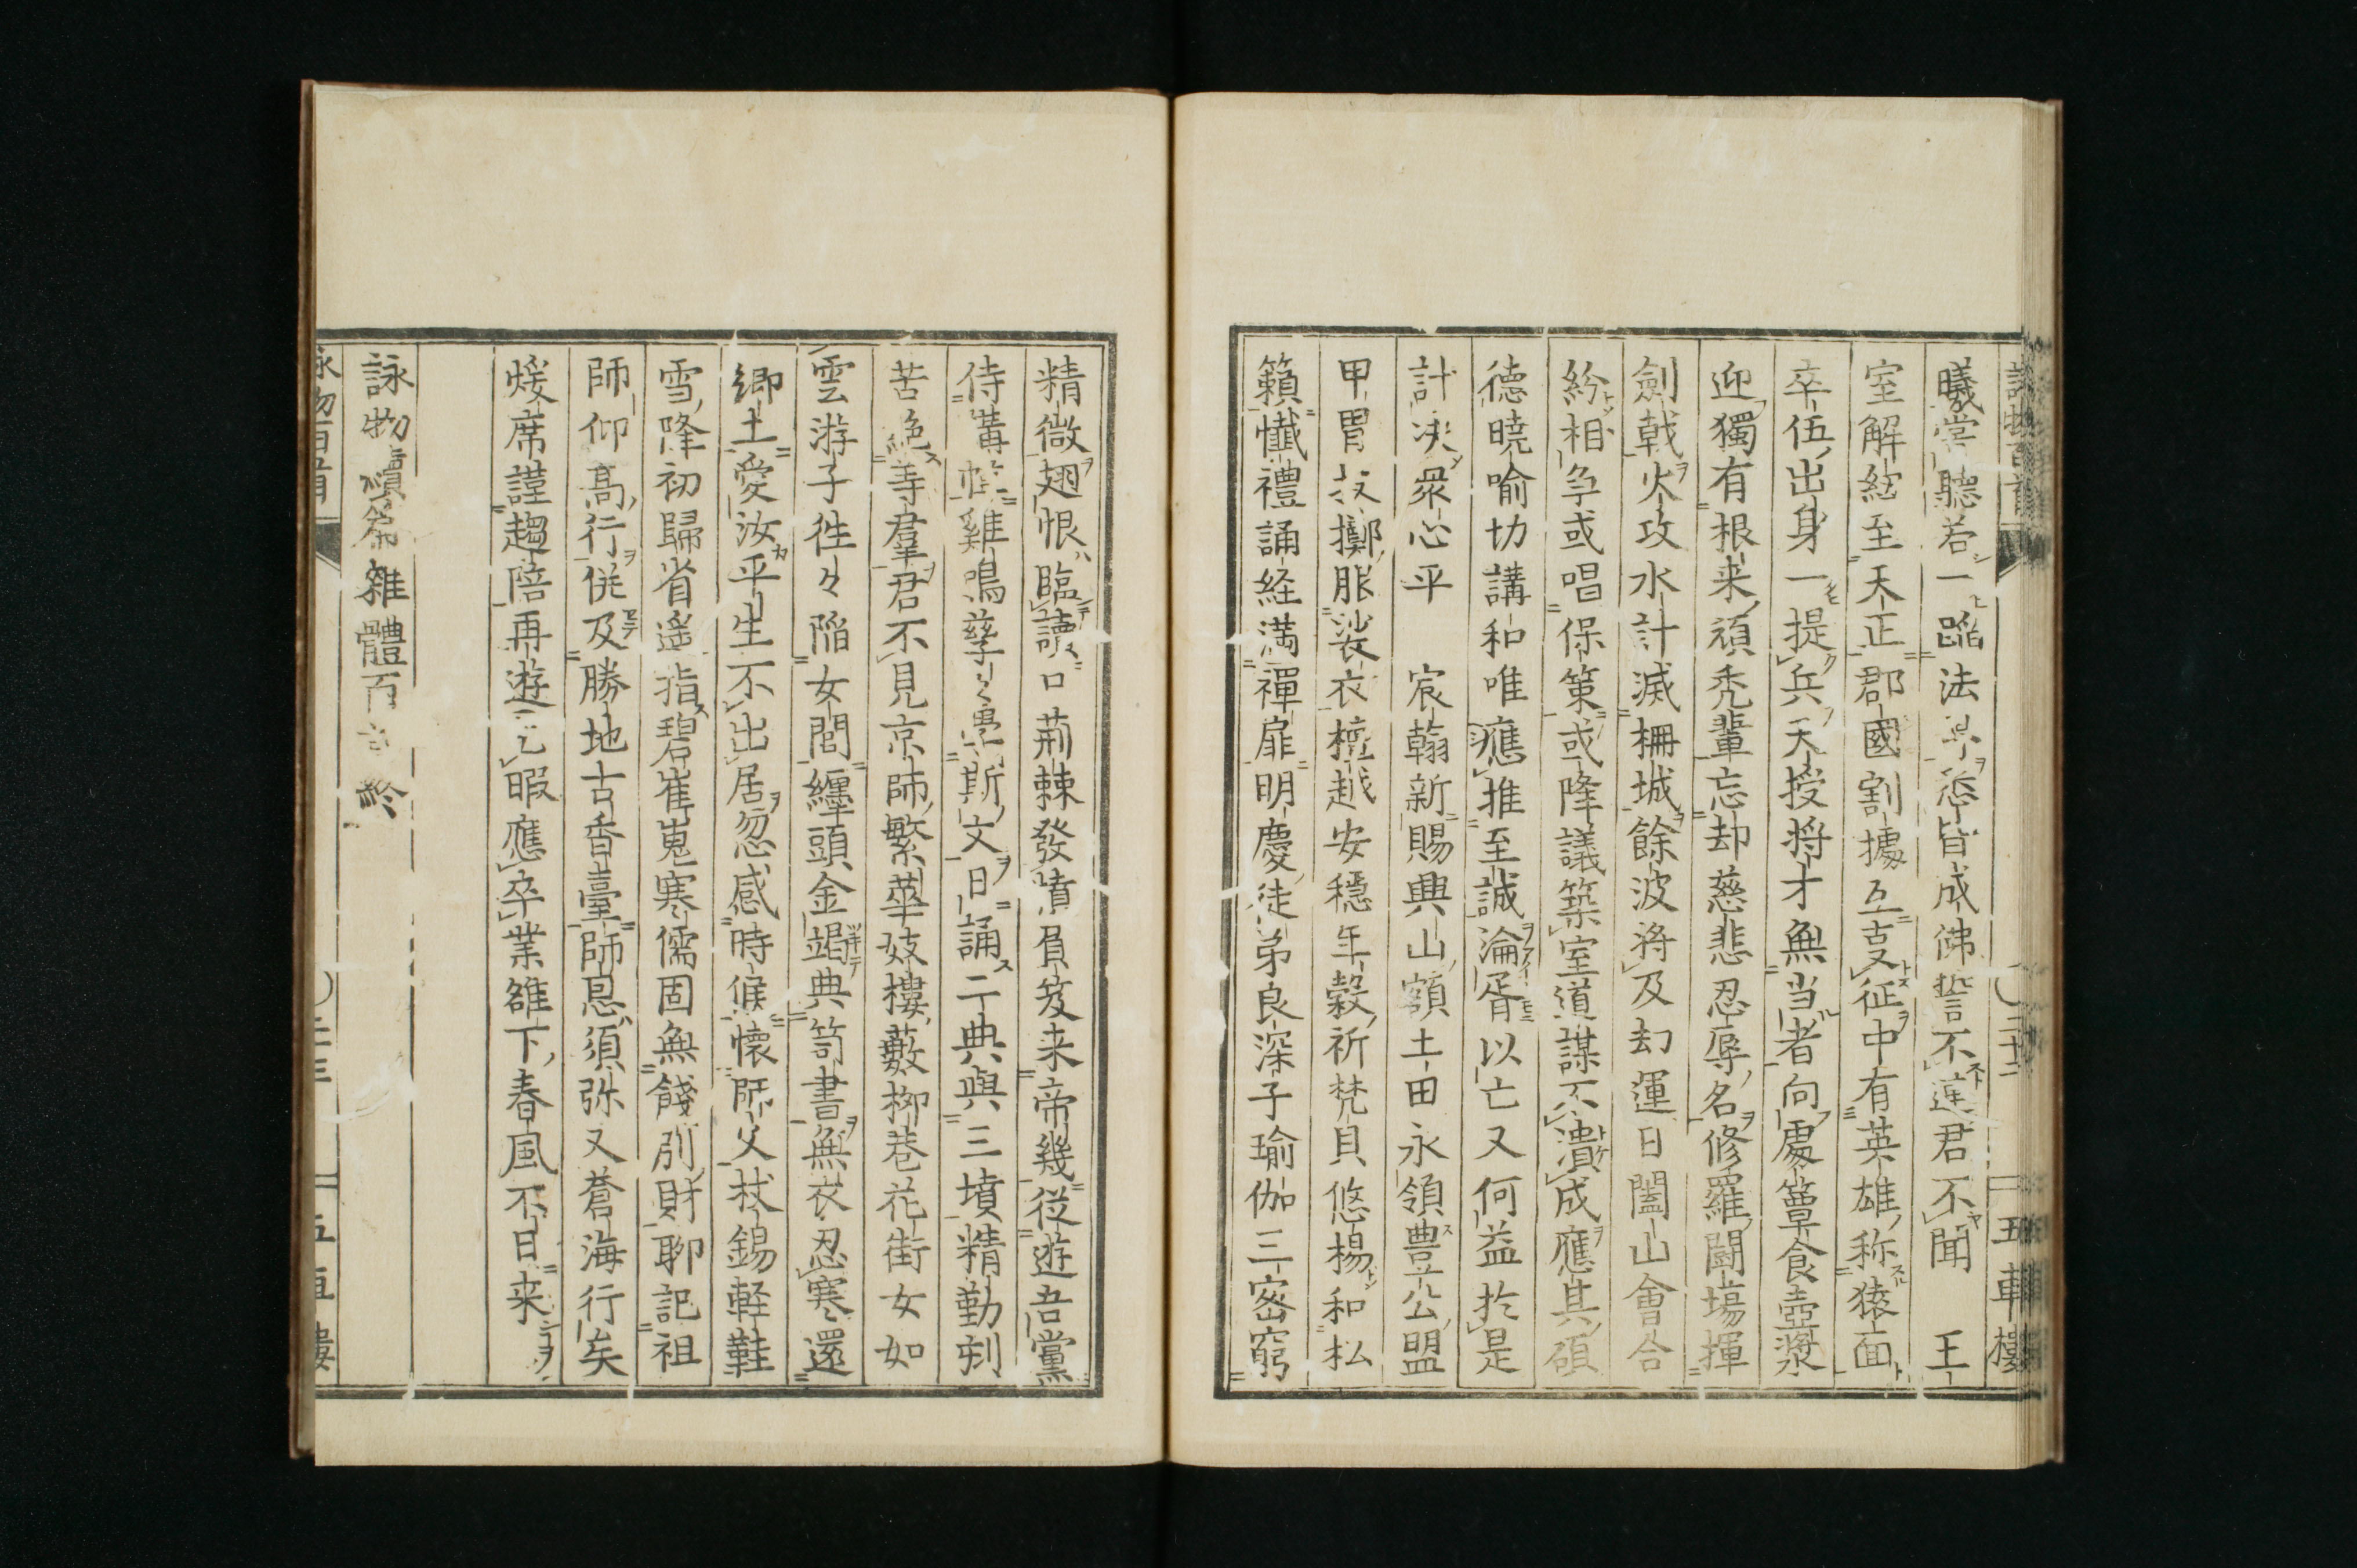 曦常聽若一蹈法界悉皆成佛誓不違君不聞　王
室解紘至天正郡國割據互支征中有英雄称猿面
卒伍出身一提兵天授将才無当者向處簞食壺漿
迎獨有根来頑禿輩忘却慈悲忍辱名修羅闘場揮
劍戟火攻水計滅柵城餘波将及刧運日闔山會合
紛相争或唱保策或降議築室道謀不潰成應其碩
德曉喻切講和唯應推至誠淪胥以亡又何益於是
計决衆心平　宸翰新賜興山額土田永領豊公盟
甲冑抜擲服袈衣檀越安穏年穀祈梵貝悠楊和松
籟懺禮誦経満禪扉明慶徒弟良深子瑜伽三密窮
詠物百首　二十二　五車樓
精微翅恨臨讀口荊棘發憤負笈来帝幾従遊吾黨
侍講帷雞鳴孳々專斯文日誦二典與三墳精勤刻
苦絶等羣君不見京師繁華妓樓藪柳巷花街女如
雲游子徃々陷女閭纒頭金竭典笥書無衣忍寒還
郷土愛汝平生不出居忽感時候懐師父杖錫軽鞋
雪降初歸省遙指碧崔嵬寒儒固無餞別財聊記祖
師仰高行併及勝地古香臺師恩須弥又蒼海行矣
煖席謹趨陪再遊乞暇應卒業雒下春風不日来
詠物續篇雜體百首終
詠物百首　二十三　五車樓